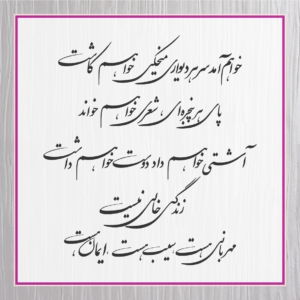 خواهم آمد سر هر دیواری میخکی خواهم کاشت
پای هر پنجره ای، شعری خواهم خواند
آشتی خواهم داد دوست خواهم داشت
زندگی خالی نیست
مهربانی هست، سیب هست، ایمان هست